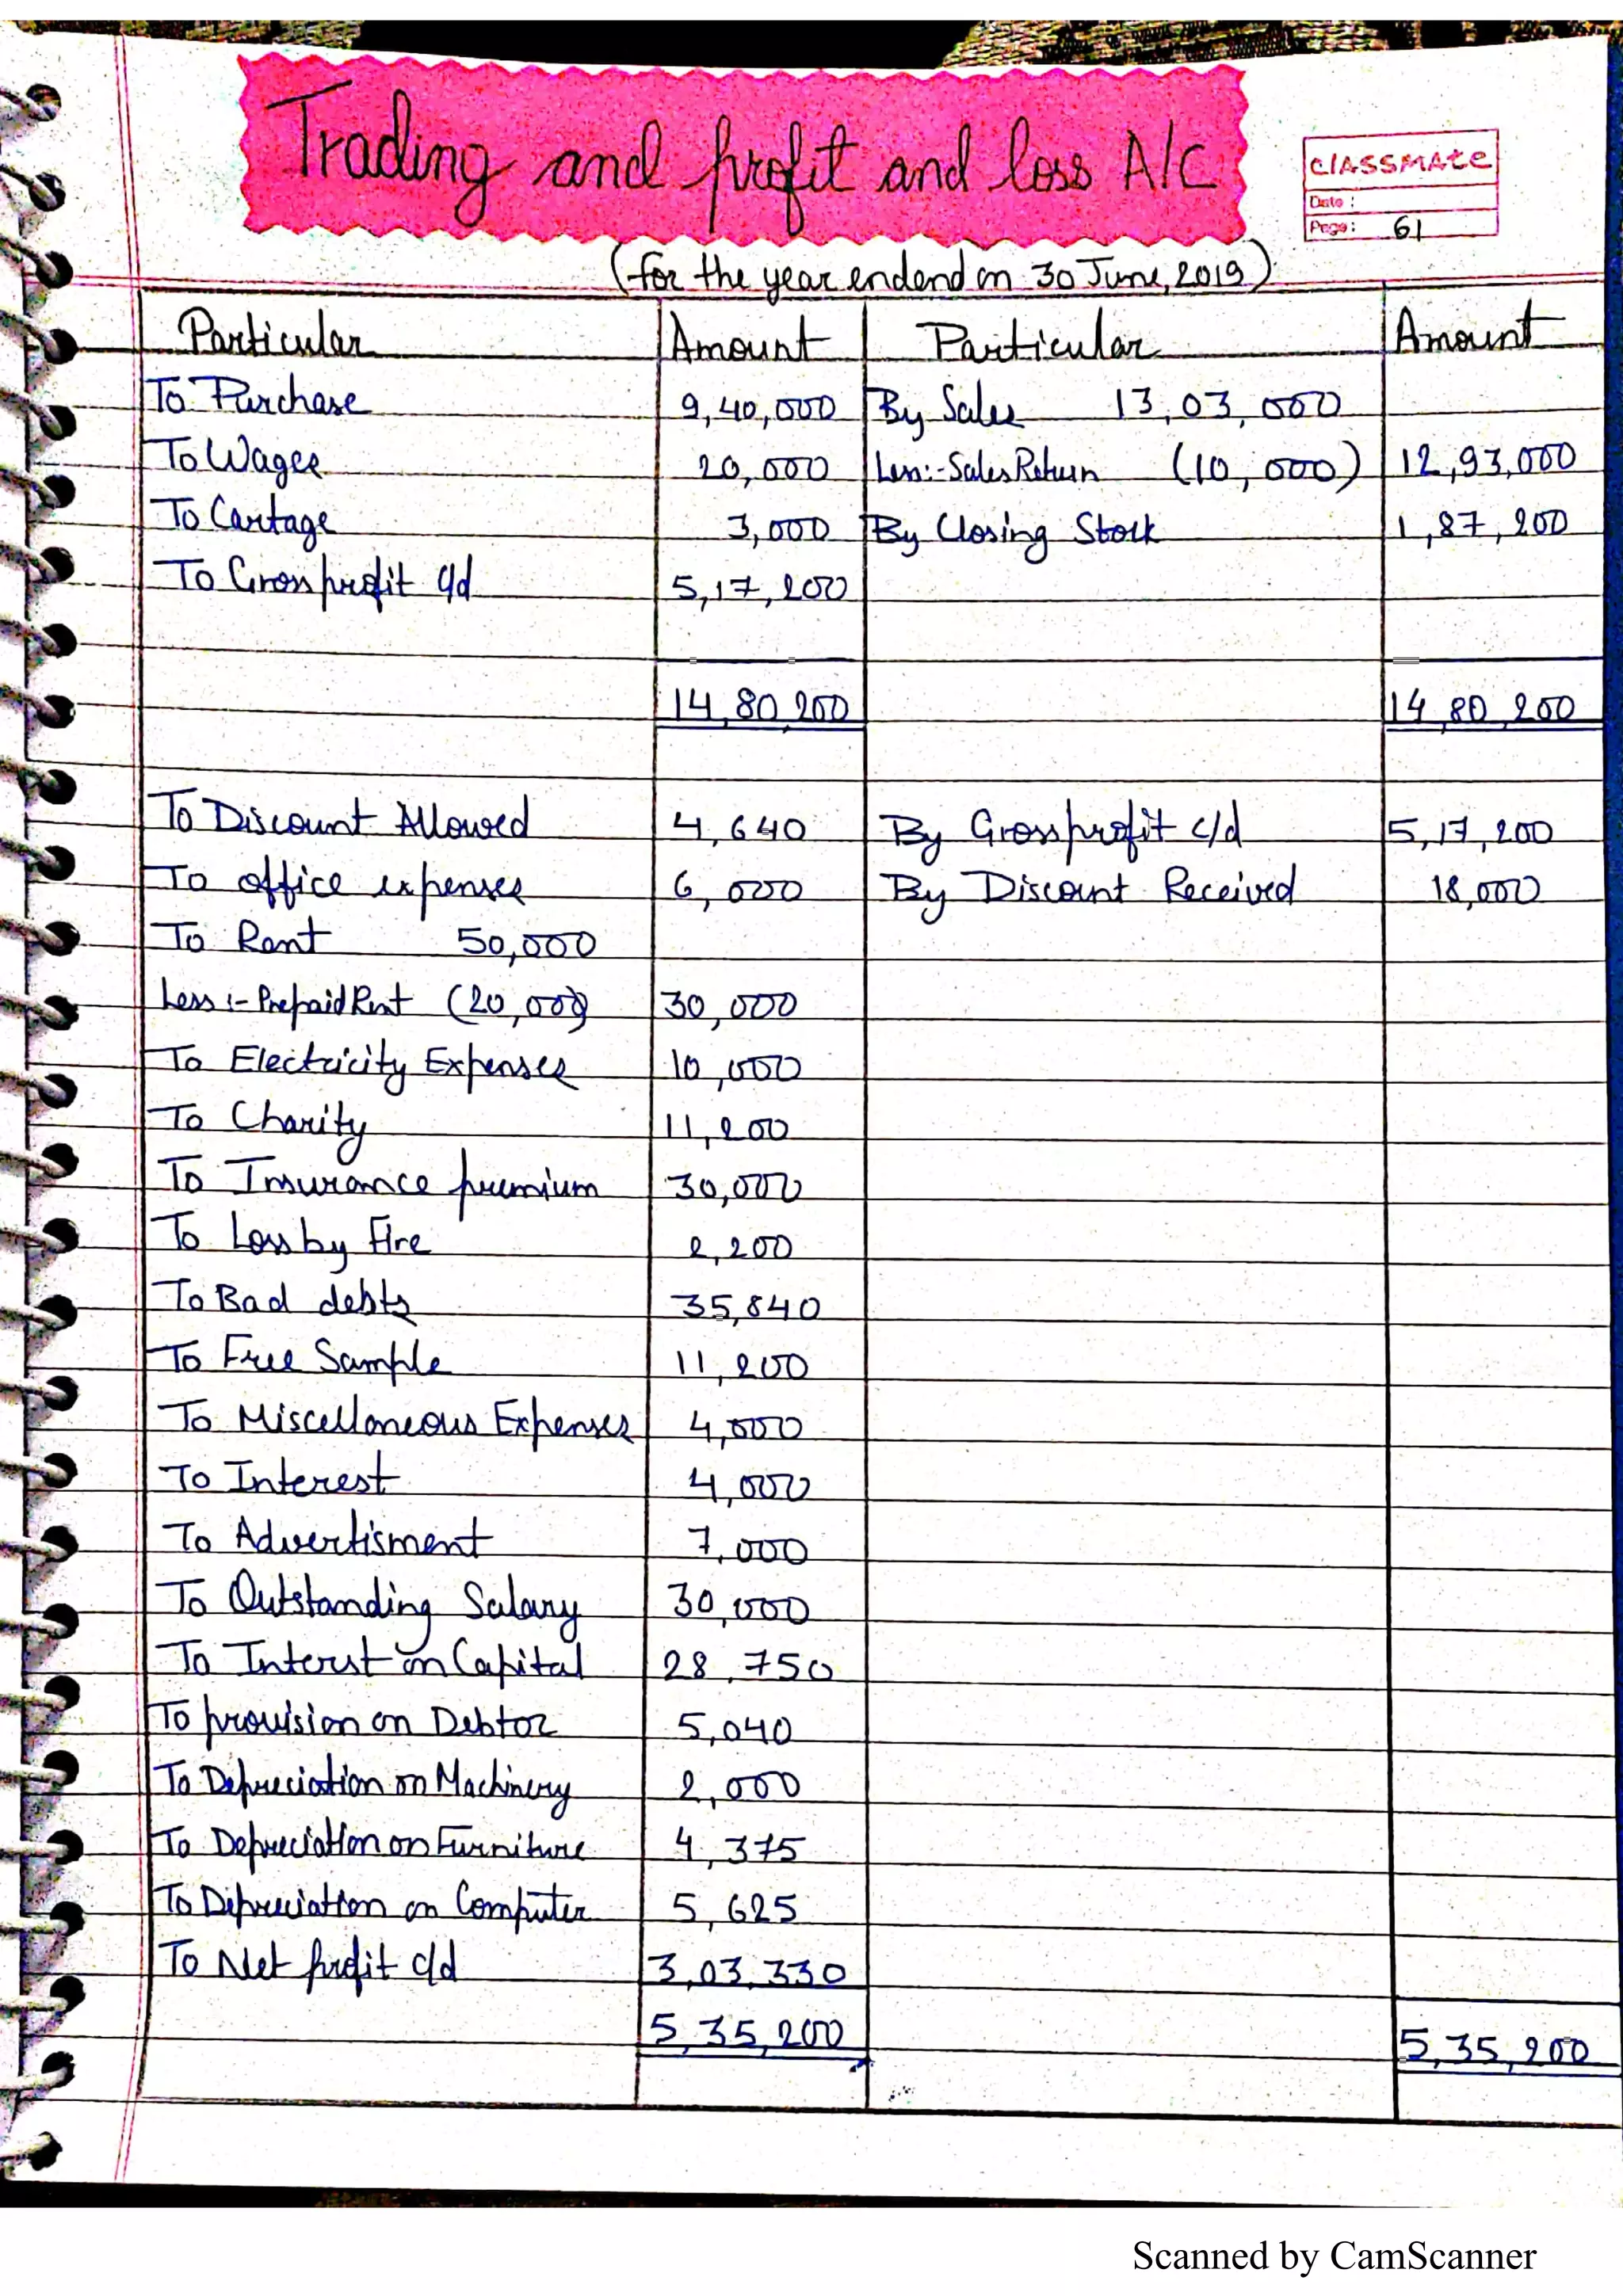 Trading and profit and loss A/C
CLASSMATE
Date :
Page: 61
(for the year endend on 30 June, 2019)
Particular Amount Particular Amount
To Purchase 9,40,000 By Sales 13,03,000
To Wages 20,000 Less:- Sales Return (10,000) 12,93,000
To Cartage 3,000 By Closing Stock 1,87,200
To Gross profit c/d 5,17,200
14,80,200 14,80,200
To Discount Allowed 4,640 By Gross profit c/d 5,17,200
To office expenses 6,000 By Discount Received 18,000
To Rent 50,000
Less :- Prepaid Rent (20,000) 30,000
To Electricity Expenses 10,000
To Charity 11,200
To Insurance premium 30,000
To Loss by Fire 2,200
To Bad debts 35,840
To Free Sample 11,200
To Miscellaneous Expenses 4,000
To Interest 4,000
To Advertisment 7,000
To Outstanding Salary 30,000
To Interst on Capital 28,750
To provision on Debtor 5,040
To Depreciation on Machinery 2,000
To Depreciation on Furniture 4,375
To Depreciation on Computer 5,625
To Net profit c/d 3,03,330
5,35,200 5,35,200
Scanned by CamScanner